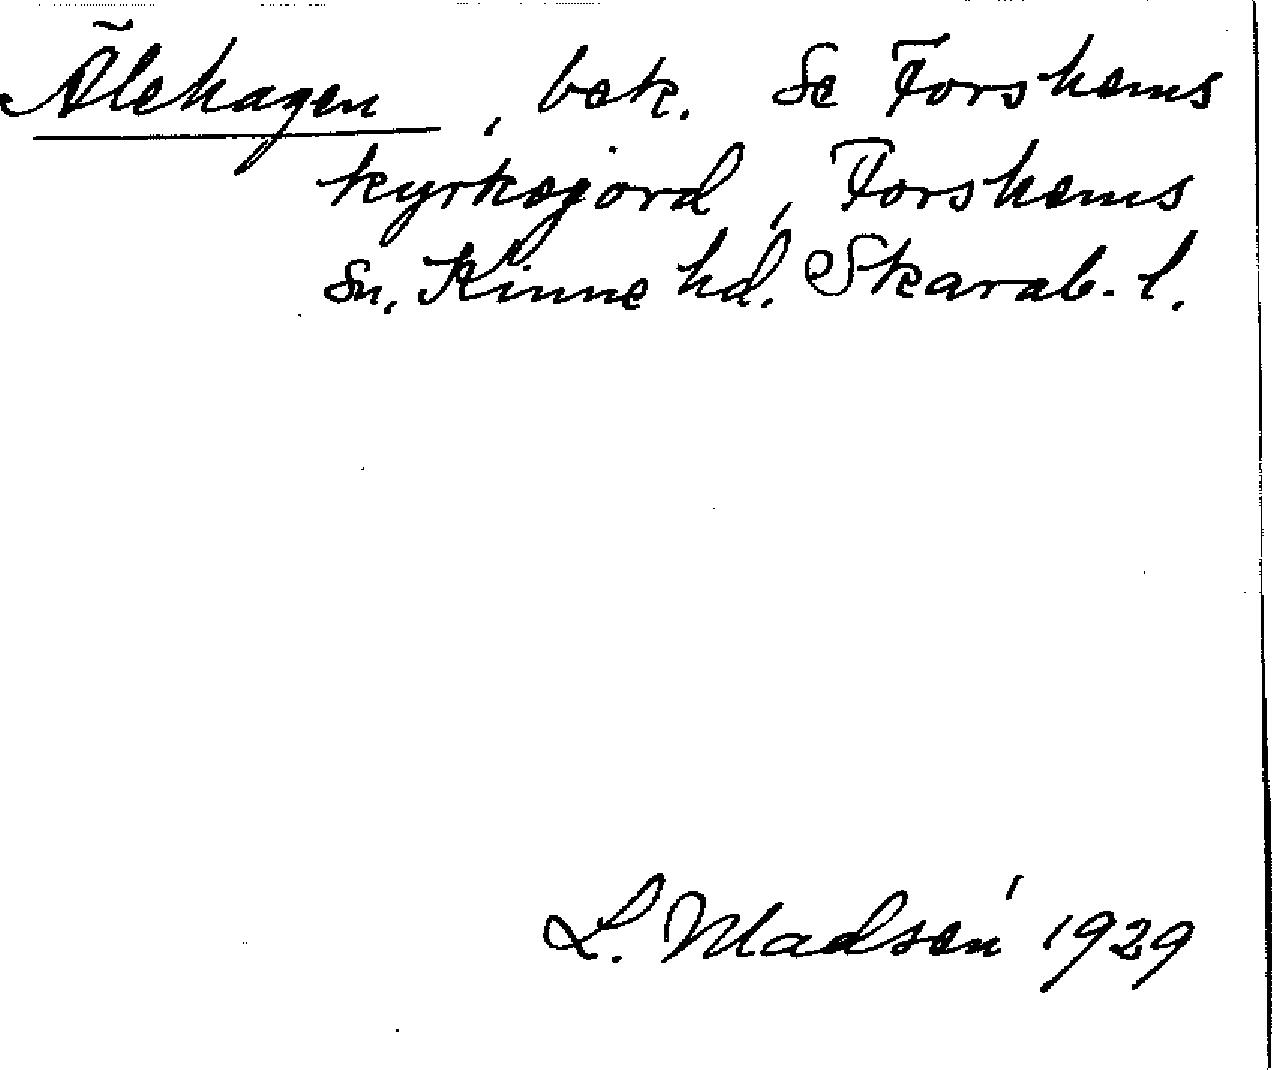 Ålehagen, bek. Se Forshems
kyrkogård, Forshems
sn. Kinne hd. Skarab. l.
L. Madsén 1929